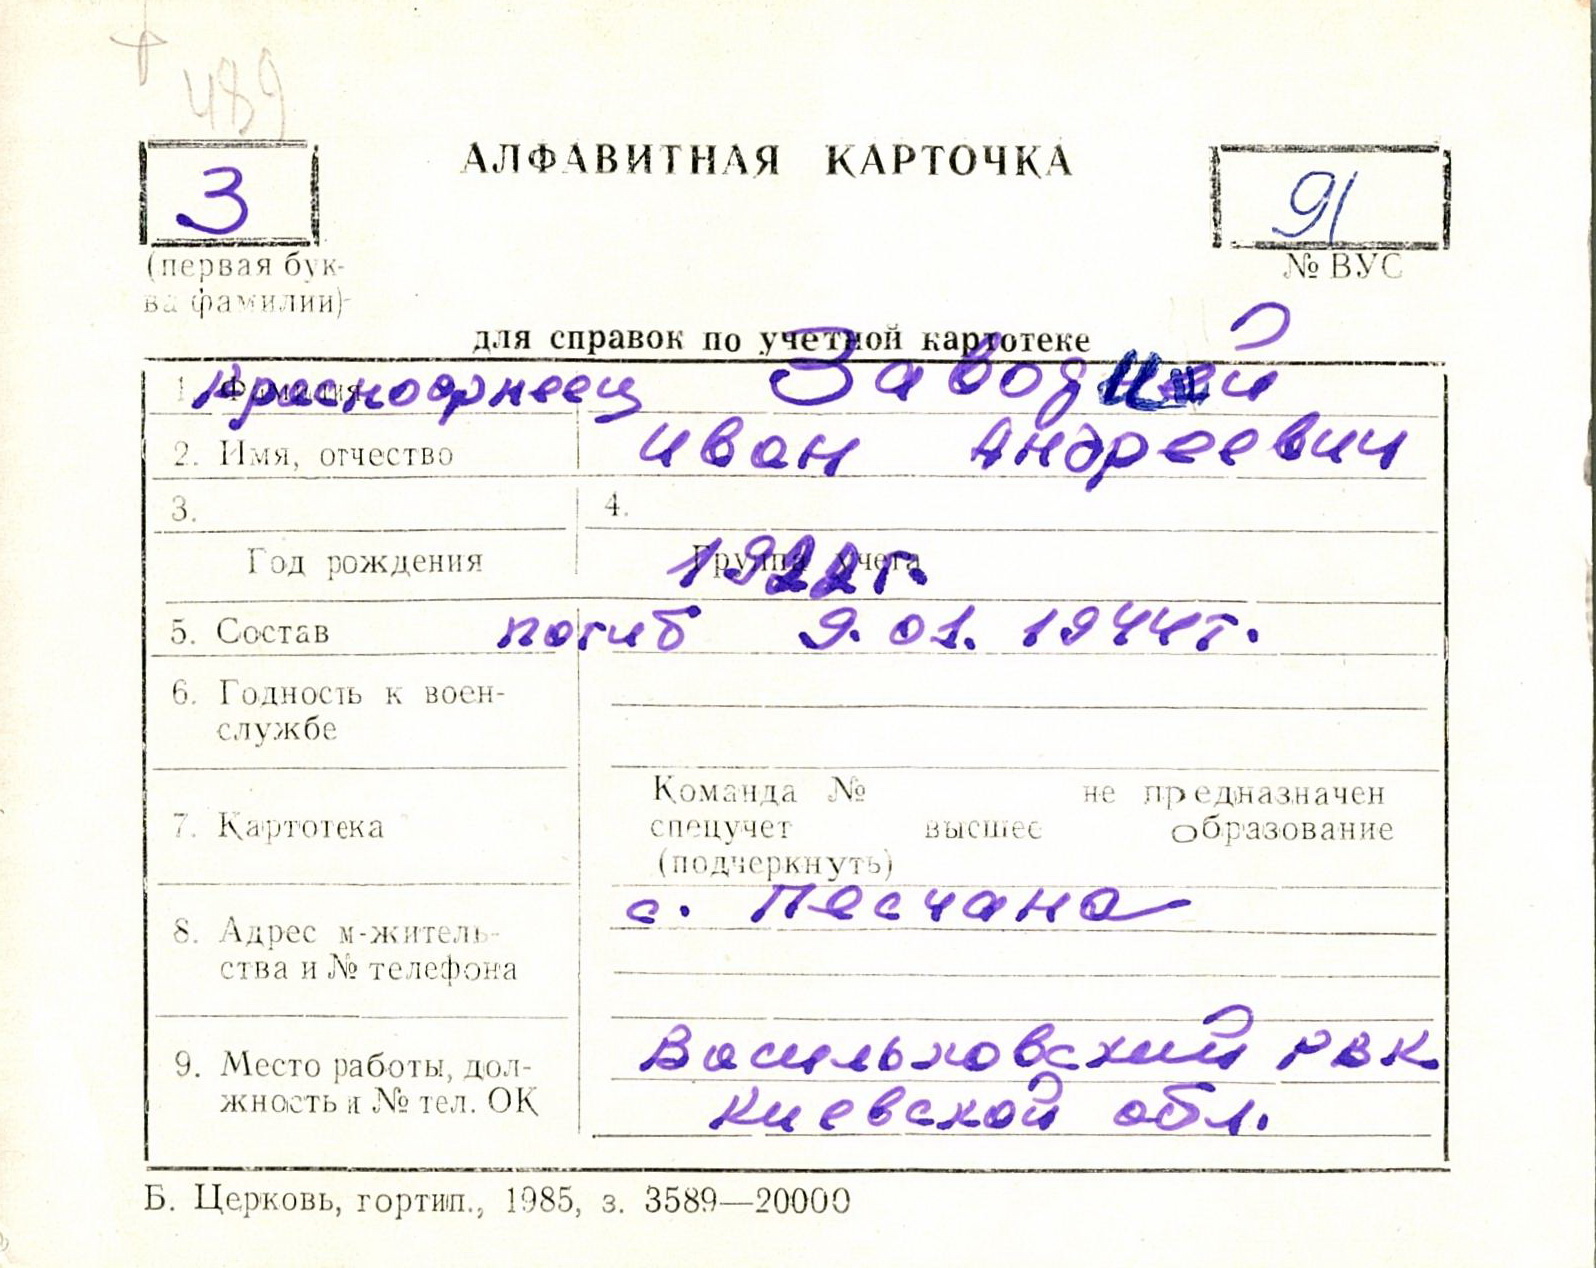 489
З
АЛФАВИТНАЯ КАРТОЧКА
91
(первая бук-
ва фамилии)
№ ВУС
для справок по учетной картотеке
1. Фамилия Красноармеец
2. Имя, отчество Иван Андреевич
3. 4.
Год рождения Группа учета 1922г.
5. Состав погиб 9.01.1944г.
6. Годность к воен-
службе
Команда № не предназначен
7. Картотека спецучет высшее образование
(подчеркнуть)
с. Песчана
8. Адрес м-житель-
ства и № телефона
Васильковский РВК
9. Место работы, дол-
жность и № тел. ОК
Киевской обл.
Б. Церковь, гортип., 1985, з. 3589—20000